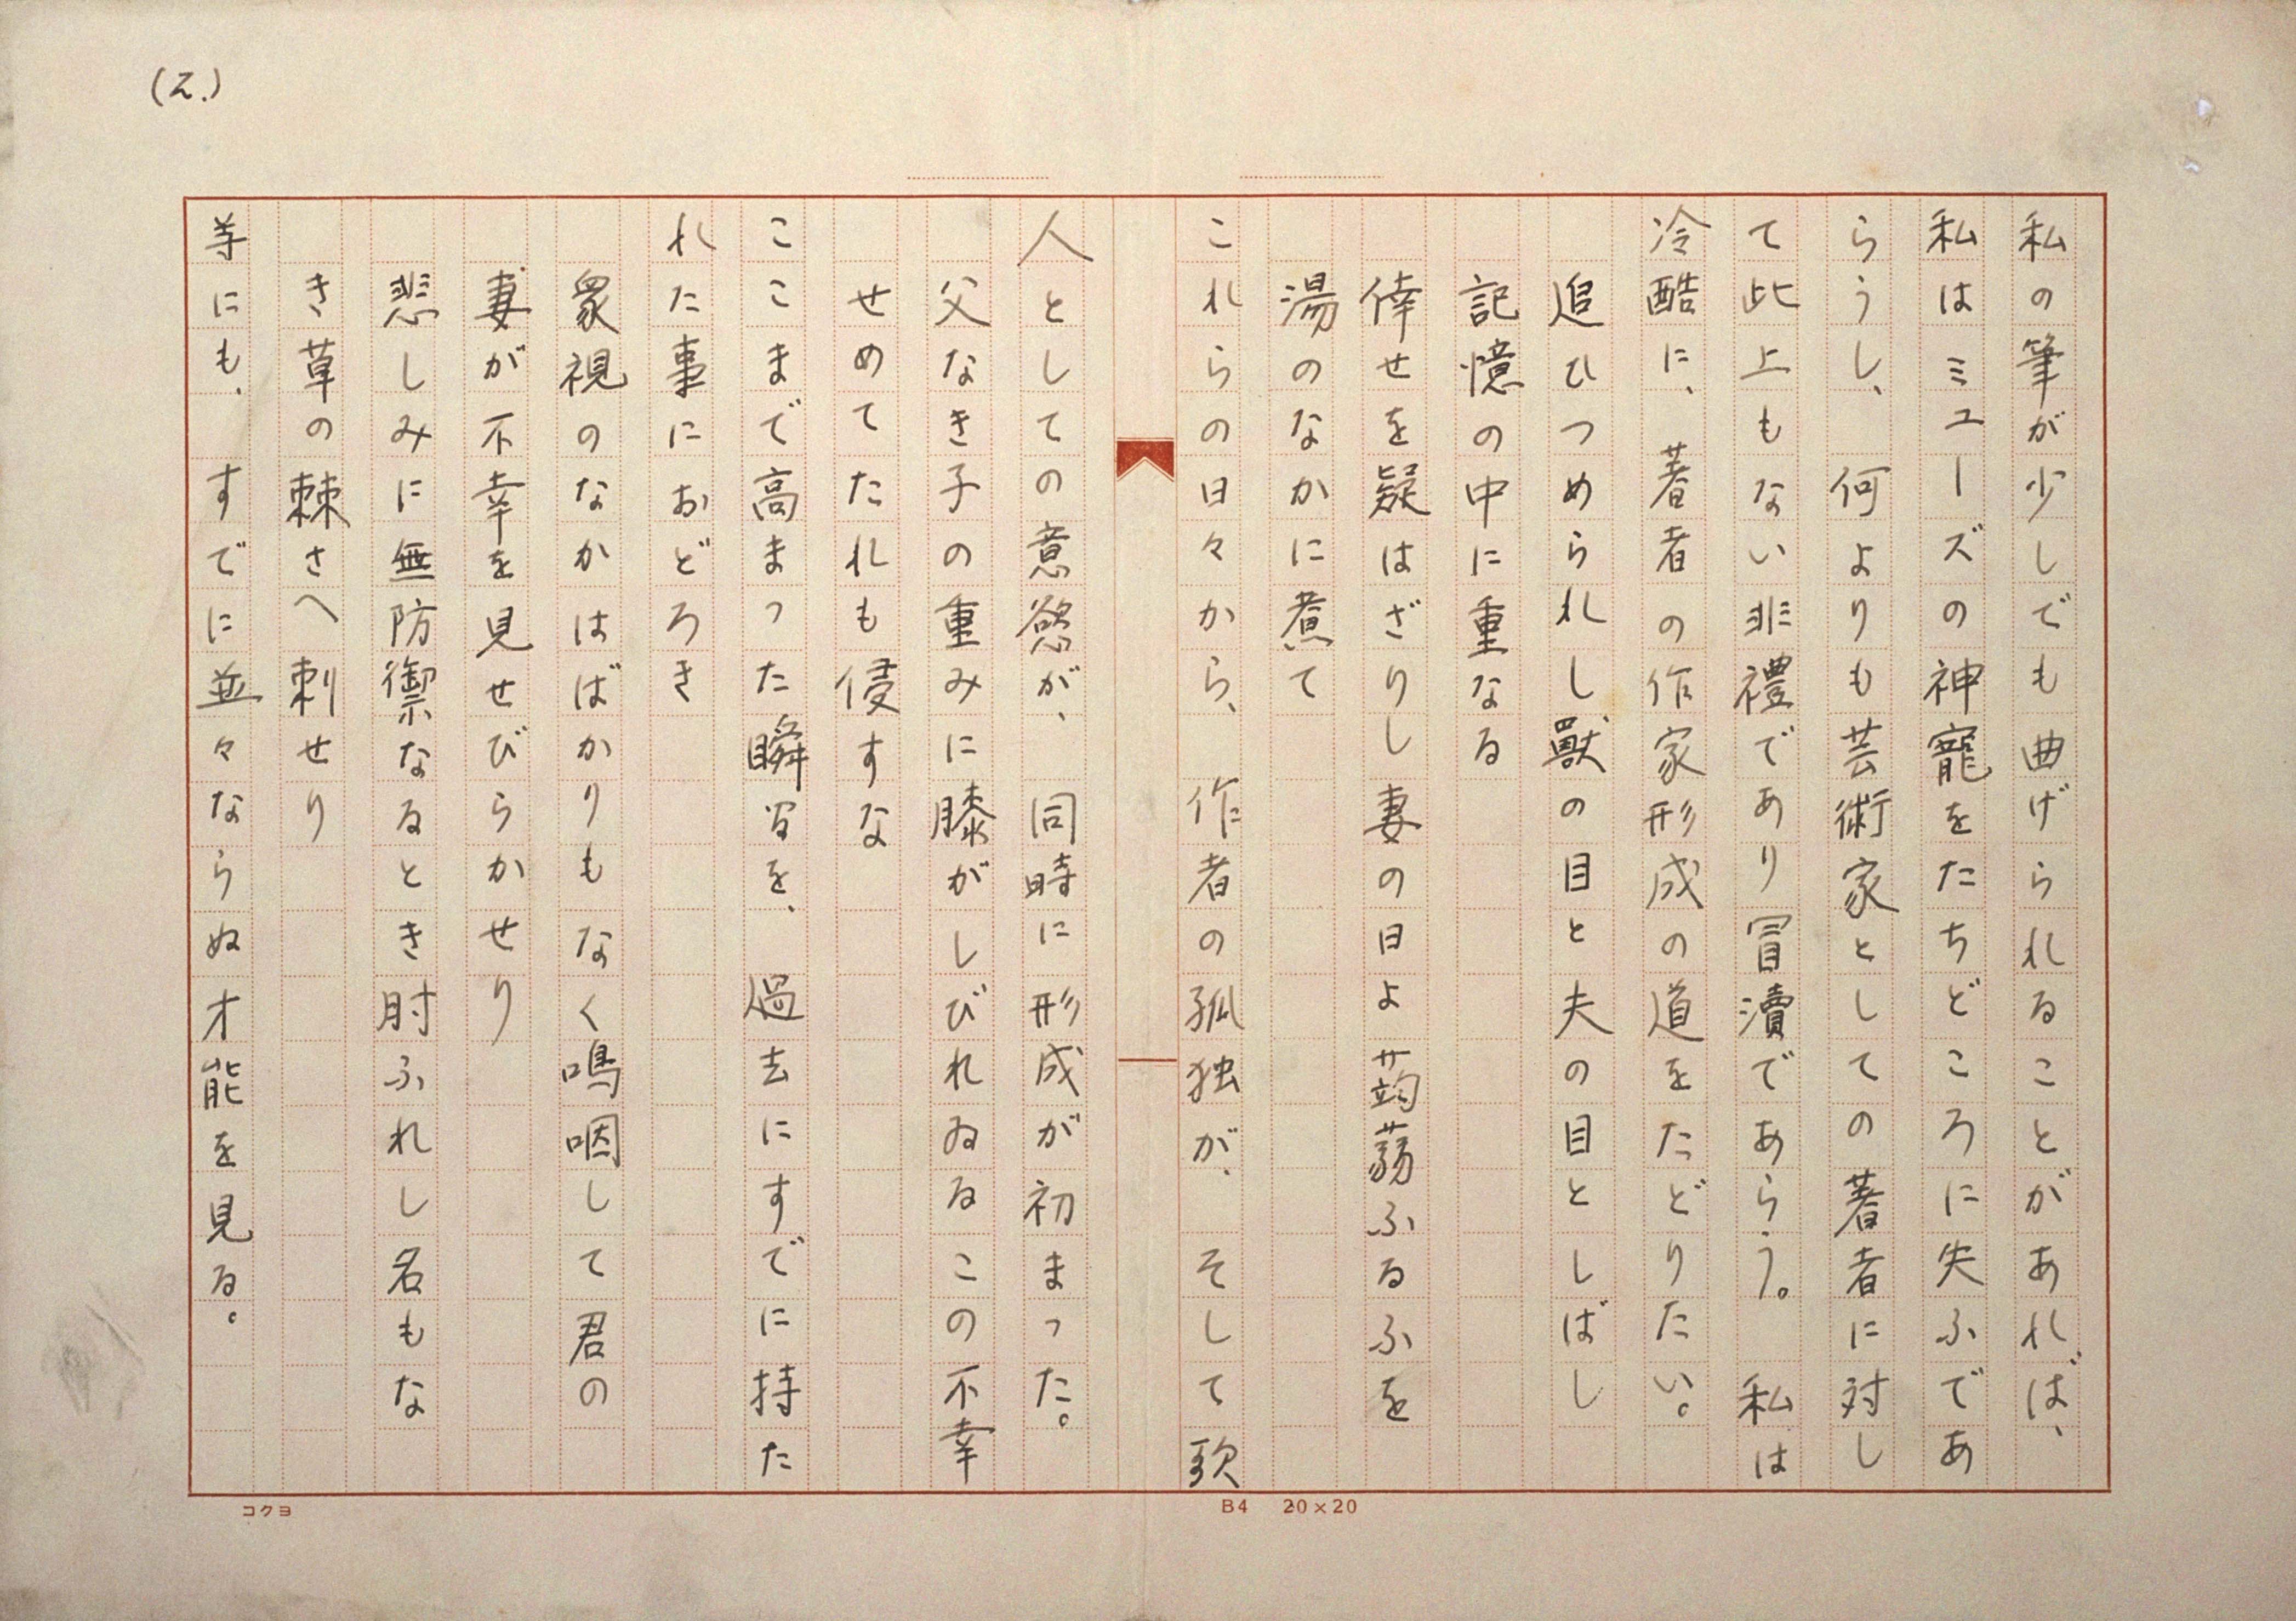 (2.)
私の筆が少しでも曲げられることがあれば、
私はミユーズの神寵をたちどころに失ふであ
らうし、何よりも芸術家としての著者に対し
て此上もない非禮であり冒瀆であらう。私は
冷酷に、著者の作家形成の道をたどりたい。
追ひつめられし獸の目と夫の目としばし
記憶の中に重なる
倖せを疑はざりし妻の日よ蒟蒻ふるふを
湯のなかに煮て
これらの日々から、作者の孤独が、そして歌
人としての意慾が、同時に形成が初まった。
父なき子の重みに膝がしびれゐるこの不幸
せめてたれも侵すな
ここまで高まった瞬間を、過去にすでに持た
れた事におどろき
衆視のなかはばかりもなく嗚咽して君の
妻が不幸を見せびらかせり
悲しみに無防禦なるとき肘ふれし名もな
き草の棘さへ刺せり
等にも、すでに並々ならぬ才能を見る。
コクヨ
B4 20×20